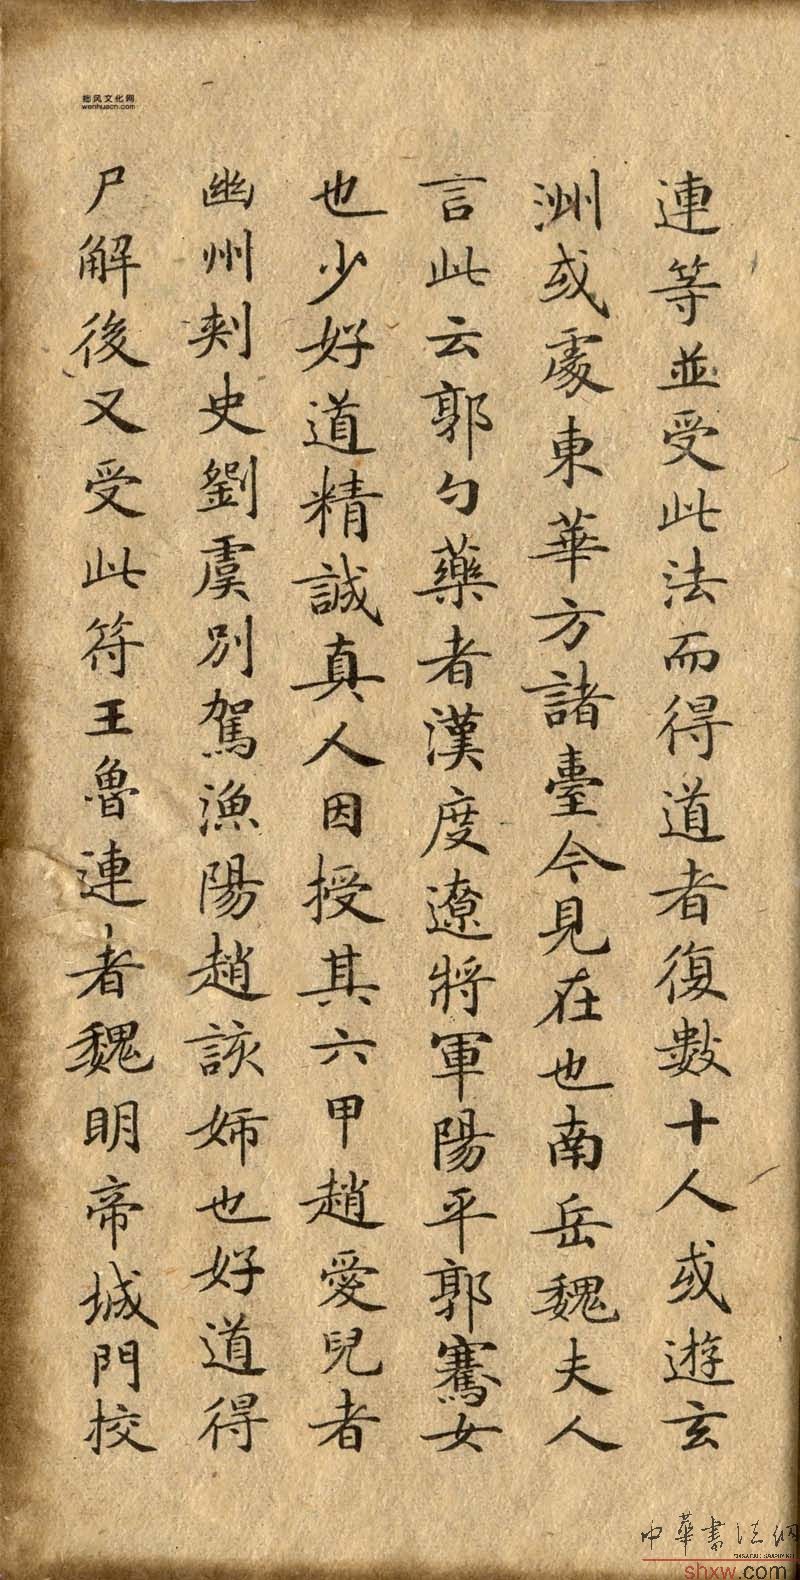 連等並受此法而得道者復數十人或遊玄
洲或處東華方諸臺今見在也南岳魏夫人
言此云郭勺藥者漢度遼將軍陽平郭騫女
也少好道精誠真人因授其六甲趙愛兒者
幽州刾史劉虞別駕漁陽趙該姉也好道得
尸解後又受此符王魯連者魏明帝城門校
拙风文化网
wenhuacn.com
中華書法網
shxw.com